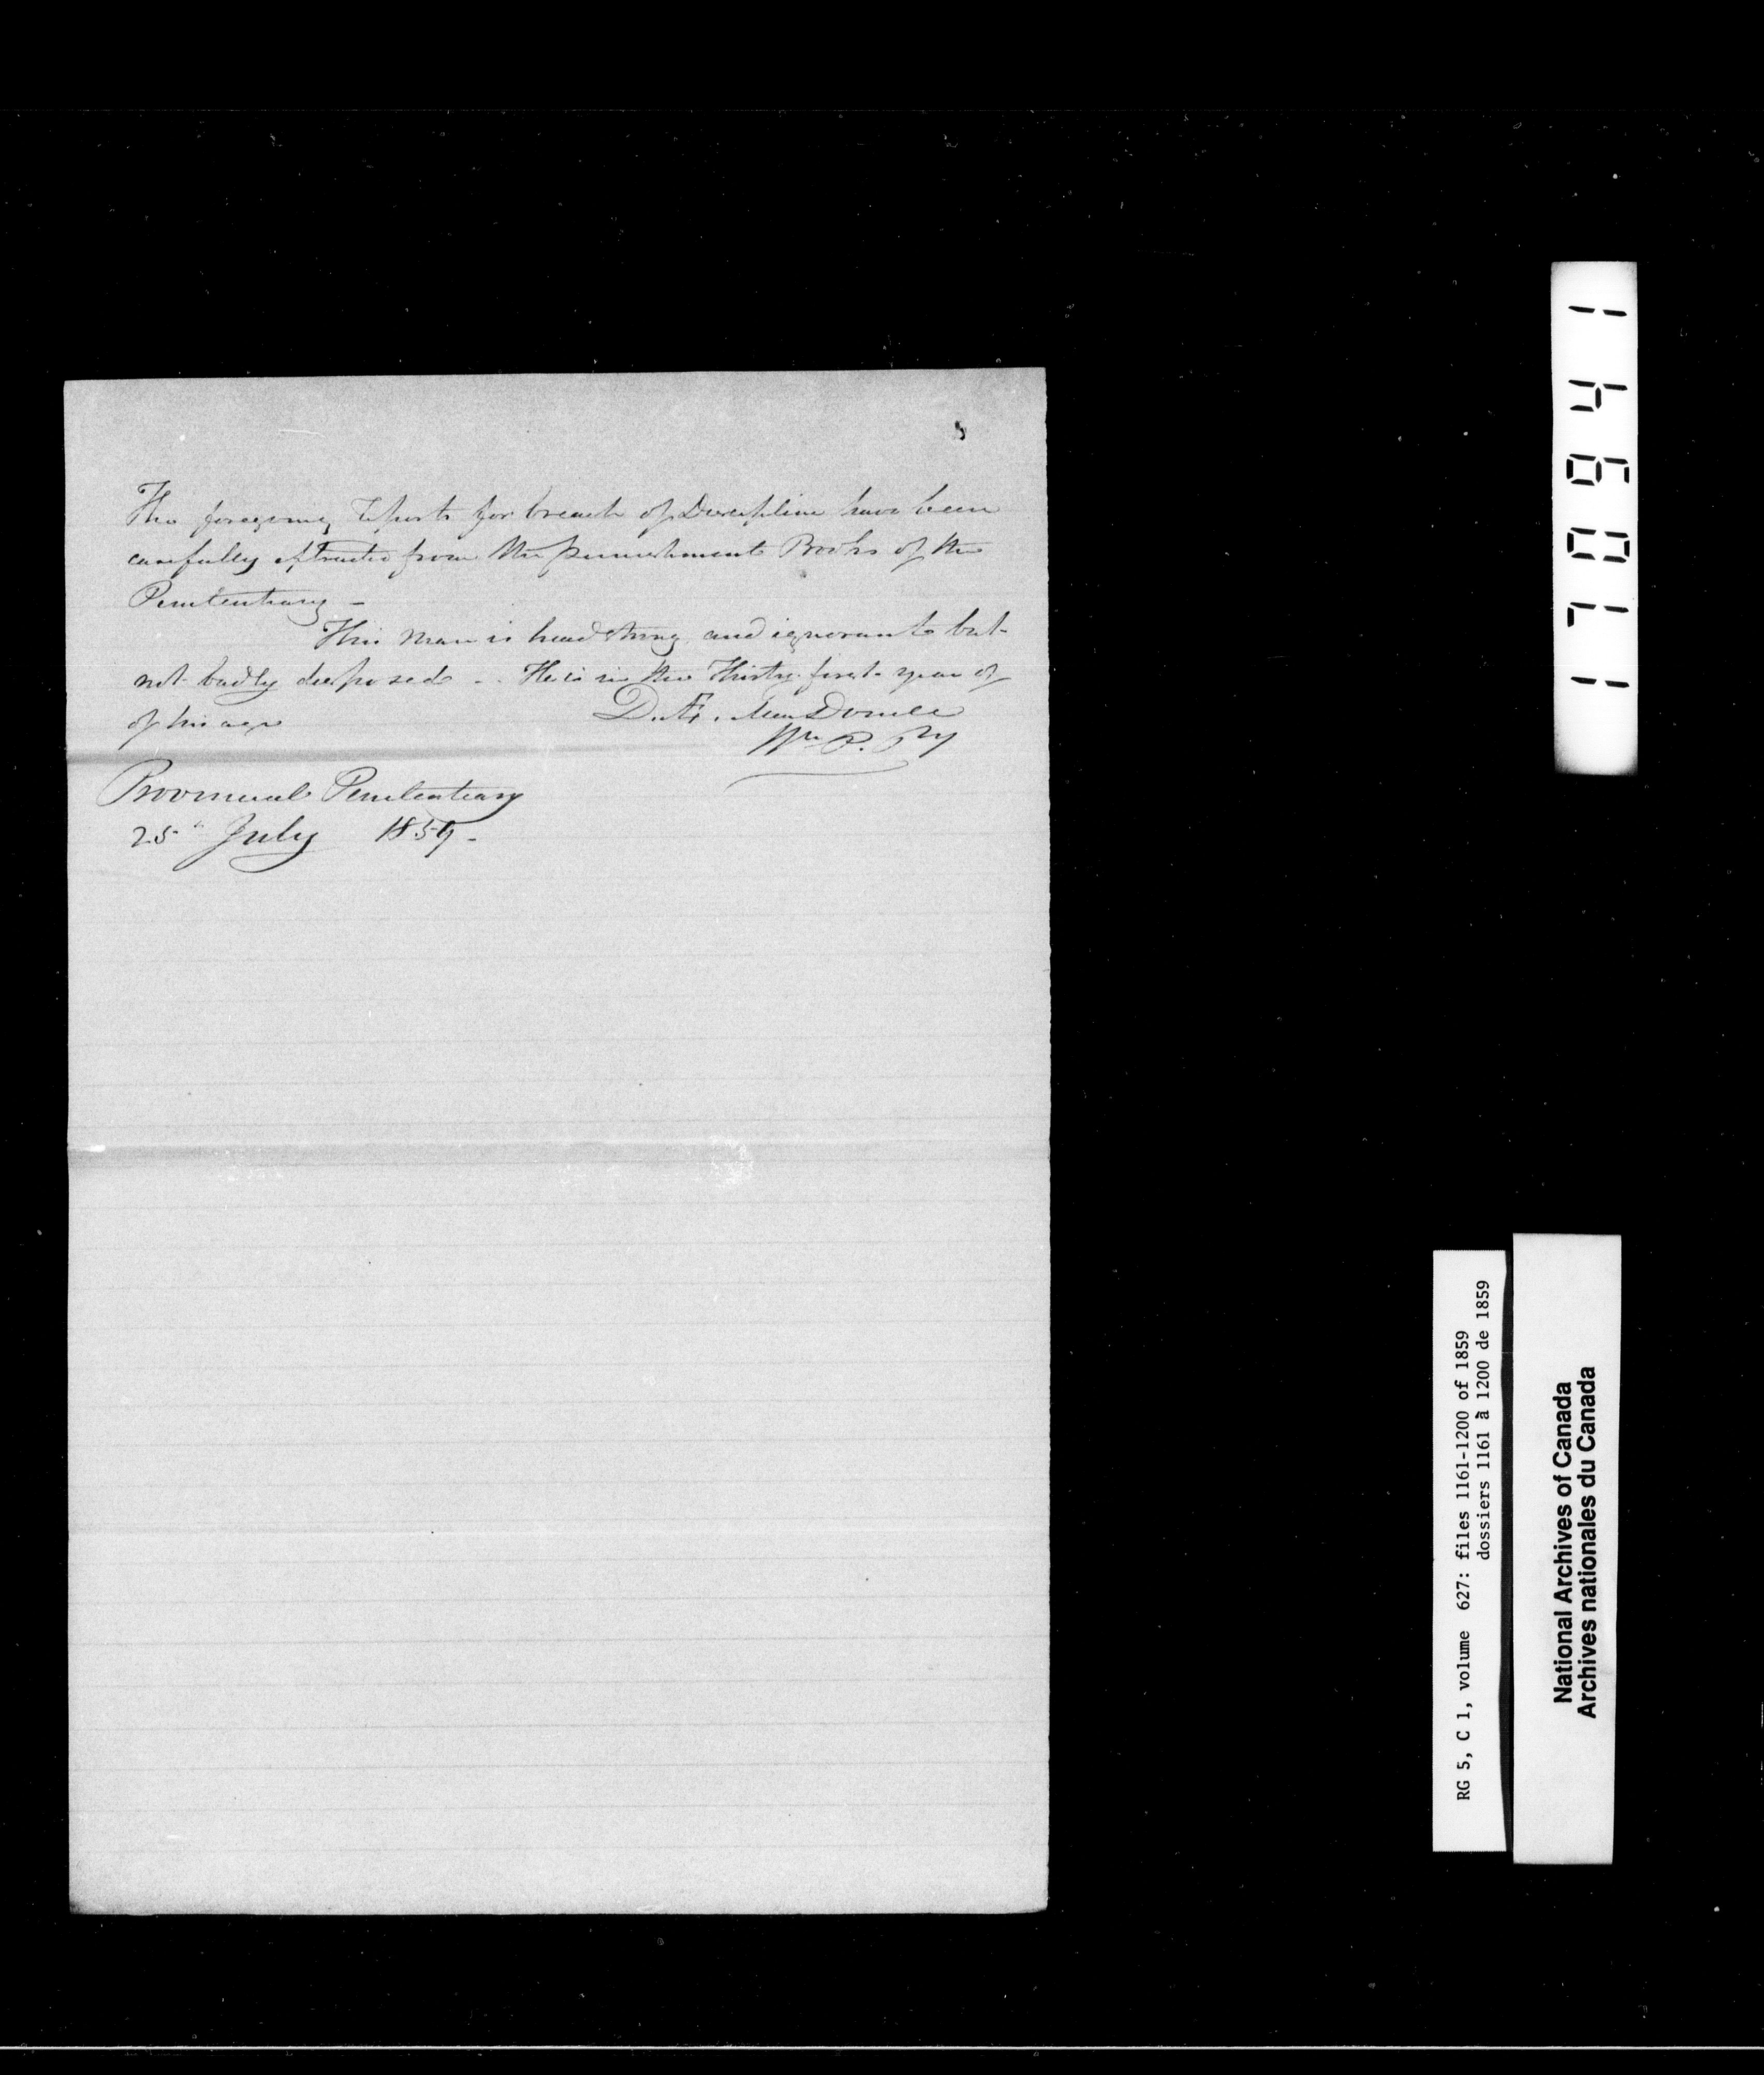 5
The foregoing reports for breach of Discipline have been
carefully extracted from the punishment Books of the
Penitentiary –
This man is headstrong and ignorant but
not badly disposed – . He is in the Thirty first year of
of his age
D. Æ. MacDonell
Wn P. Py
Provincial Penitentiary
25th July 1859 –
170941
RG 5, C 1, volume 627: files 1161-1200 of 1859
dossiers 1161 à 1200 de 1859
National Archives of Canada
Archives nationales du Canada